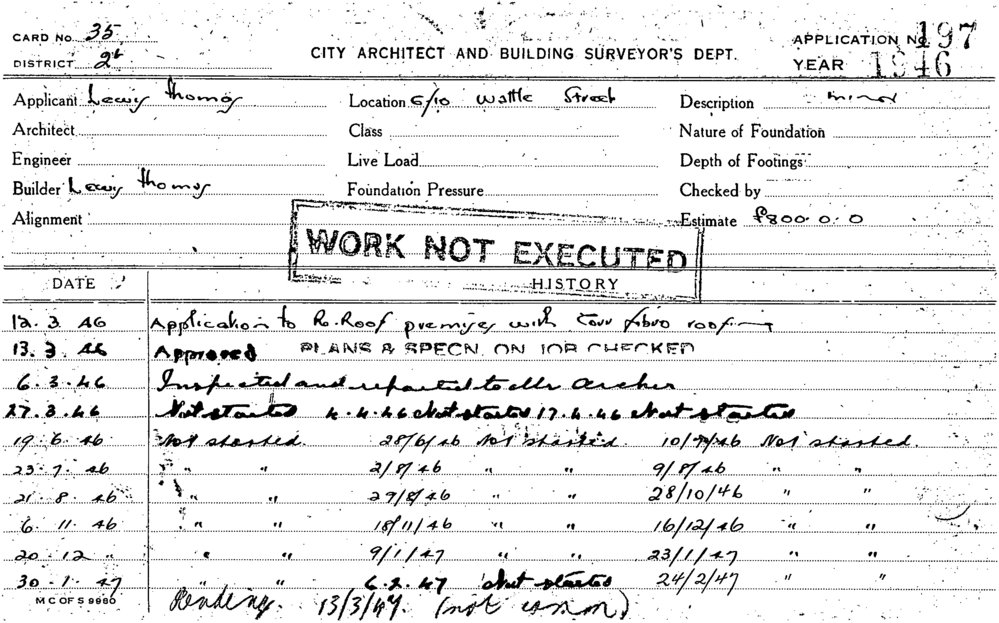 CARD No. 35
DISTRICT 2L
CITY ARCHITECT AND BUILDING SURVEYOR'S DEPT.
APPLICATION No. 197
YEAR 1946
Applicant Lewis Thomas Location 6/10 Wattle Street Description minor
Architect Class Nature of Foundation
Engineer Live Load Depth of Footings
Builder Lewis Thomas Foundation Pressure Checked by
Alignment Estimate £800.0.0
WORK NOT EXECUTED
DATE HISTORY
12.3.46 Application to Re.Roof premises with Corr fibro roofing
13.3.46 Approved PLANS & SPECN. ON JOB CHECKED
6.3.46 Inspected and reported to Mr Archer
27.3.46 Not started 4.4.46 Not started 17.4.46 Not started
19.6.46 Not started. 28/6/46 Not started. 10/7/46 Not started.
23.7.46 " " 2/8/46 " " 9/8/46 " "
21.8.46 " " 29/8/46 " " 28/10/46 " "
6.11.46 " " 18/11/46 " " 16/12/46 " "
20.12 " " " 9/1/47 " " 23/1/47 " "
30.1.47 " " 6.2.47 Not started 24/2/47 " "
M C OF S 9980 Pending. 13/3/47. (not comm)